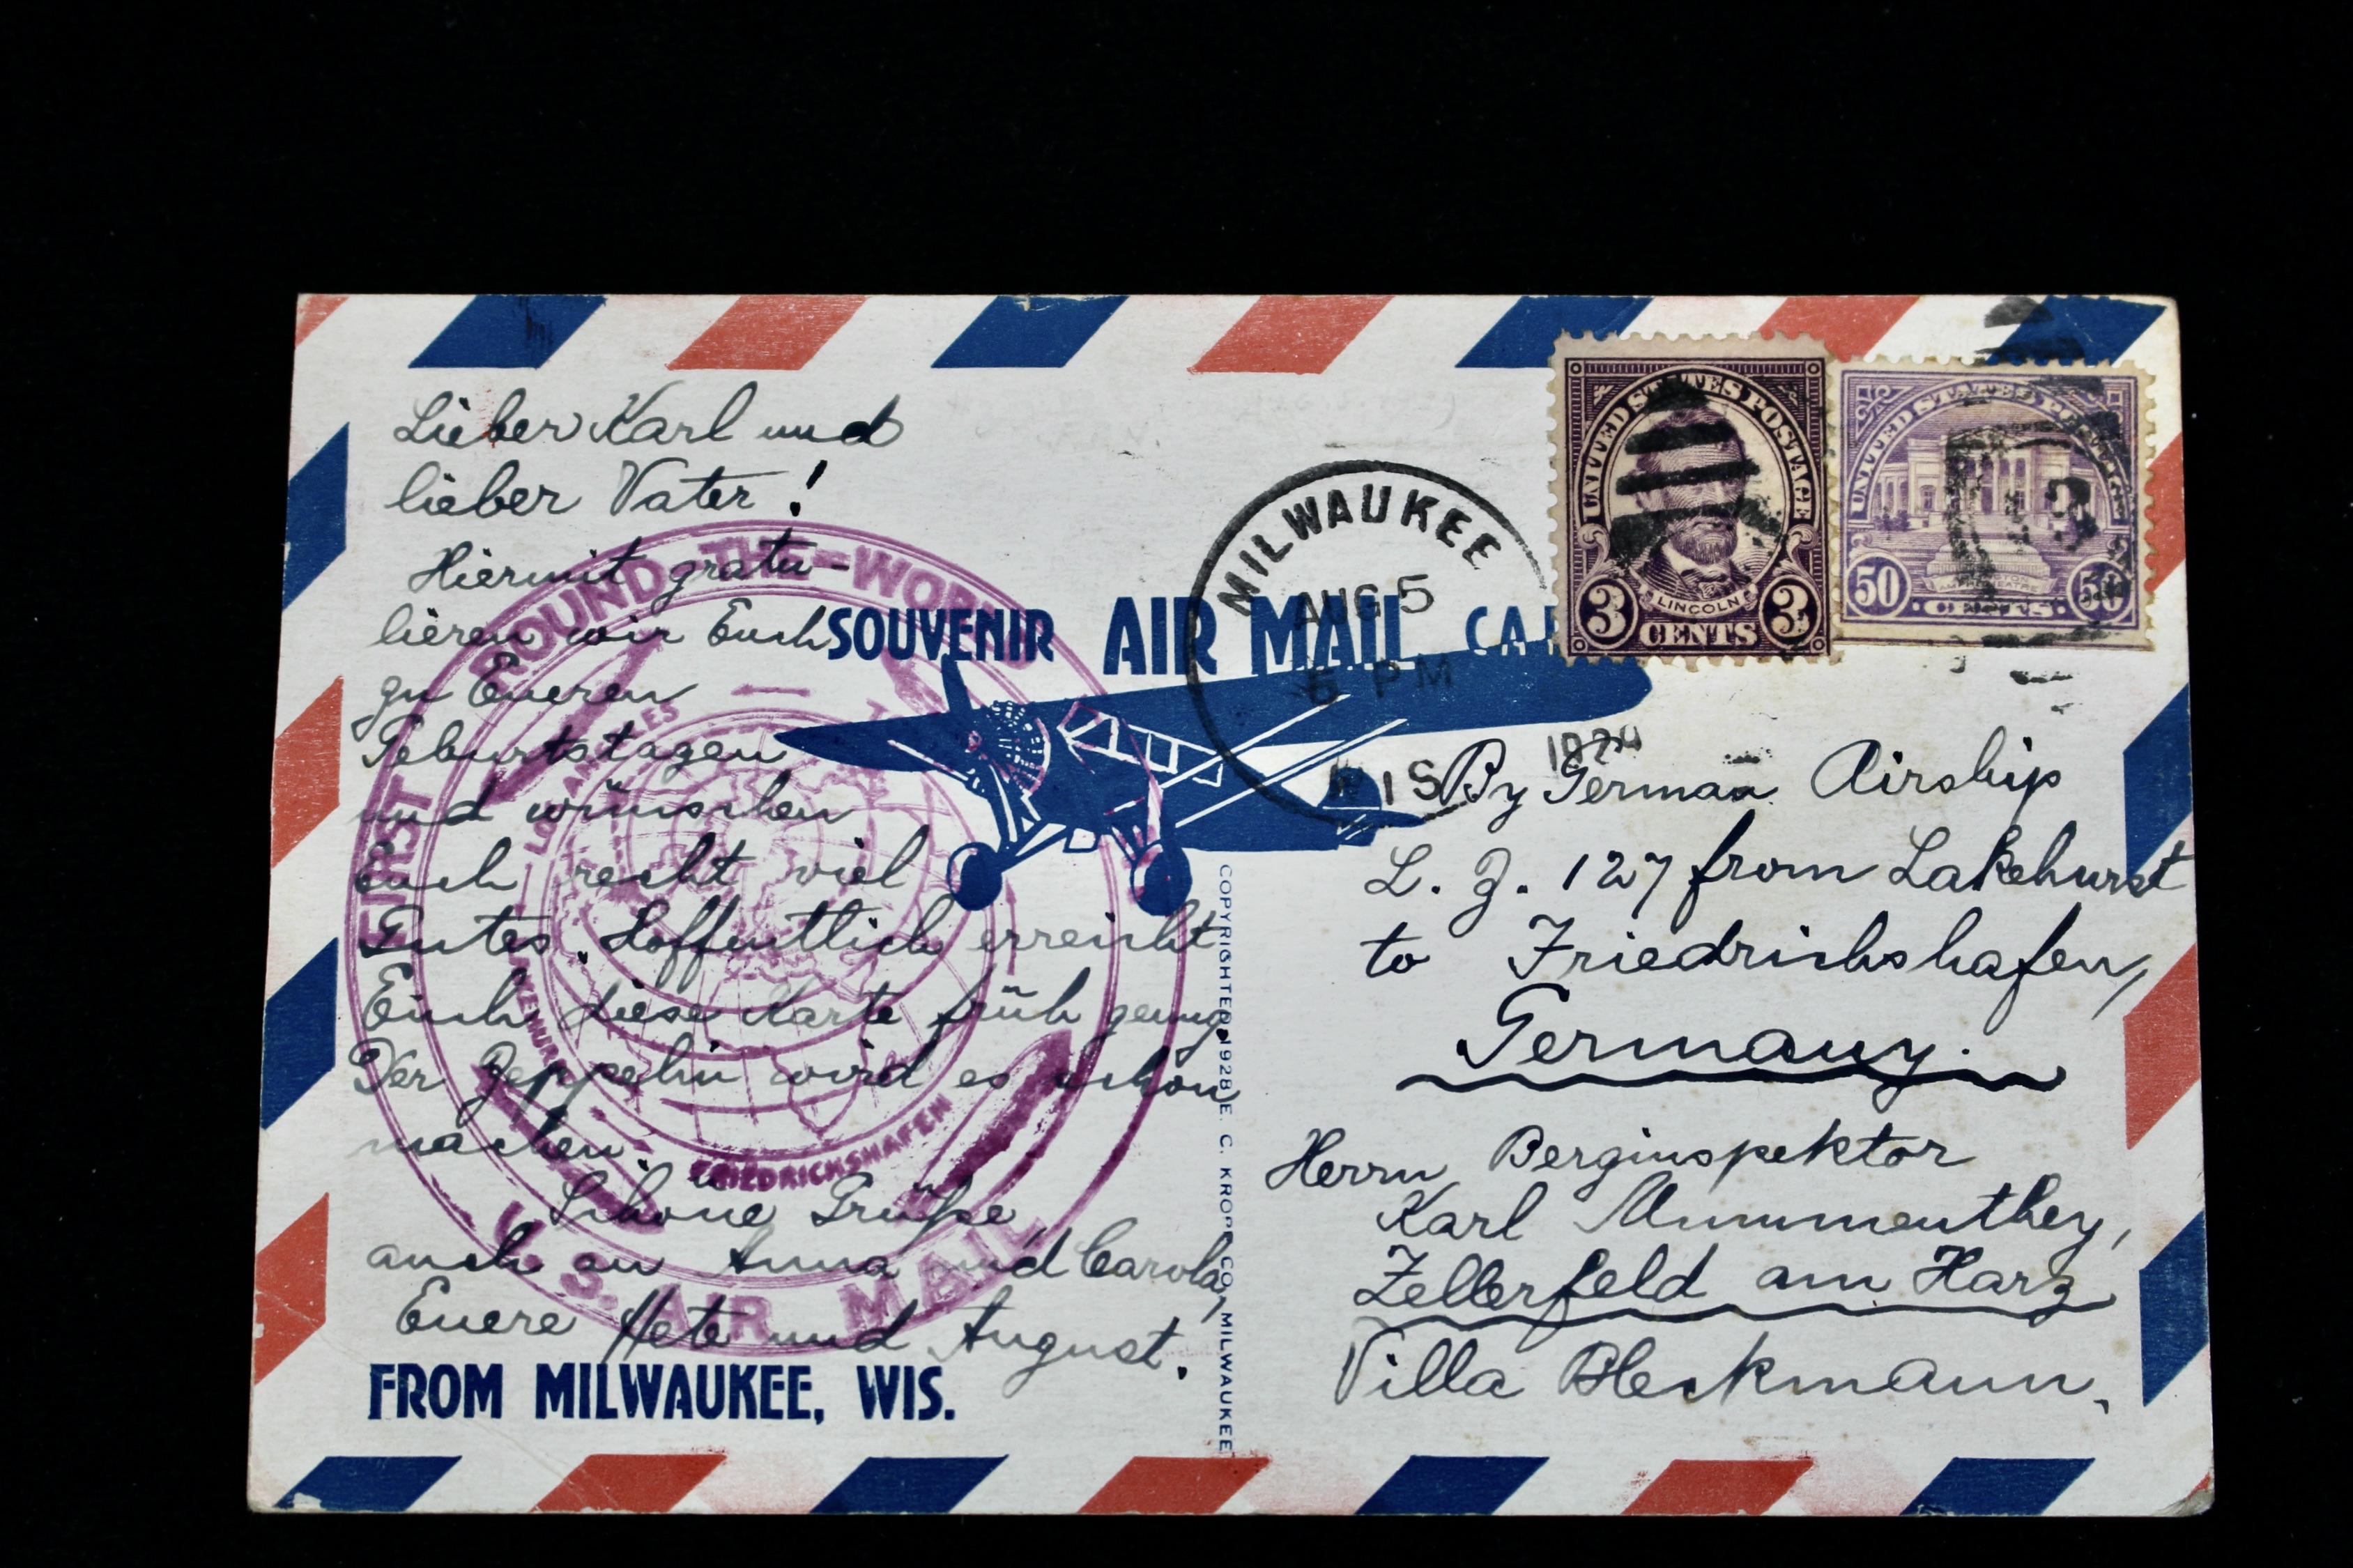 Lieber Karl und
lieber Vater!
Hiermit gratu-
lieren wir Euch
zu Eueren
Geburtstagen
und wünschen
Euch recht viel
Gutes. Hoffentlich erreicht
Euch diese Karte früh genug.
Der Zeppelin wird es schon
machen.
Schöne Grüße
auch an Anna und Carola,
Euere Hete und August.
SOUVENIR AIR MAIL
FROM MILWAUKEE, WIS.
FIRST ROUND-THE-WORLD
U.S. AIR MAIL
LOS ANGELES
FRIEDRICHSHAFEN
LAKEHURST
MILWAUKEE
AUG 5
6 PM
WIS.
UNITED STATES POSTAGE
LINCOLN
3 CENTS 3
UNITED STATES POSTAGE
50 CENTS 50
COPYRIGHTED 1928 E. C. KROPP CO., MILWAUKEE
By German Airship
L. Z. 127 from Lakehurst
to Friedrichshafen,
Germany.
Herrn Berginspektor
Karl Mummenthey,
Zellerfeld am Harz
Villa